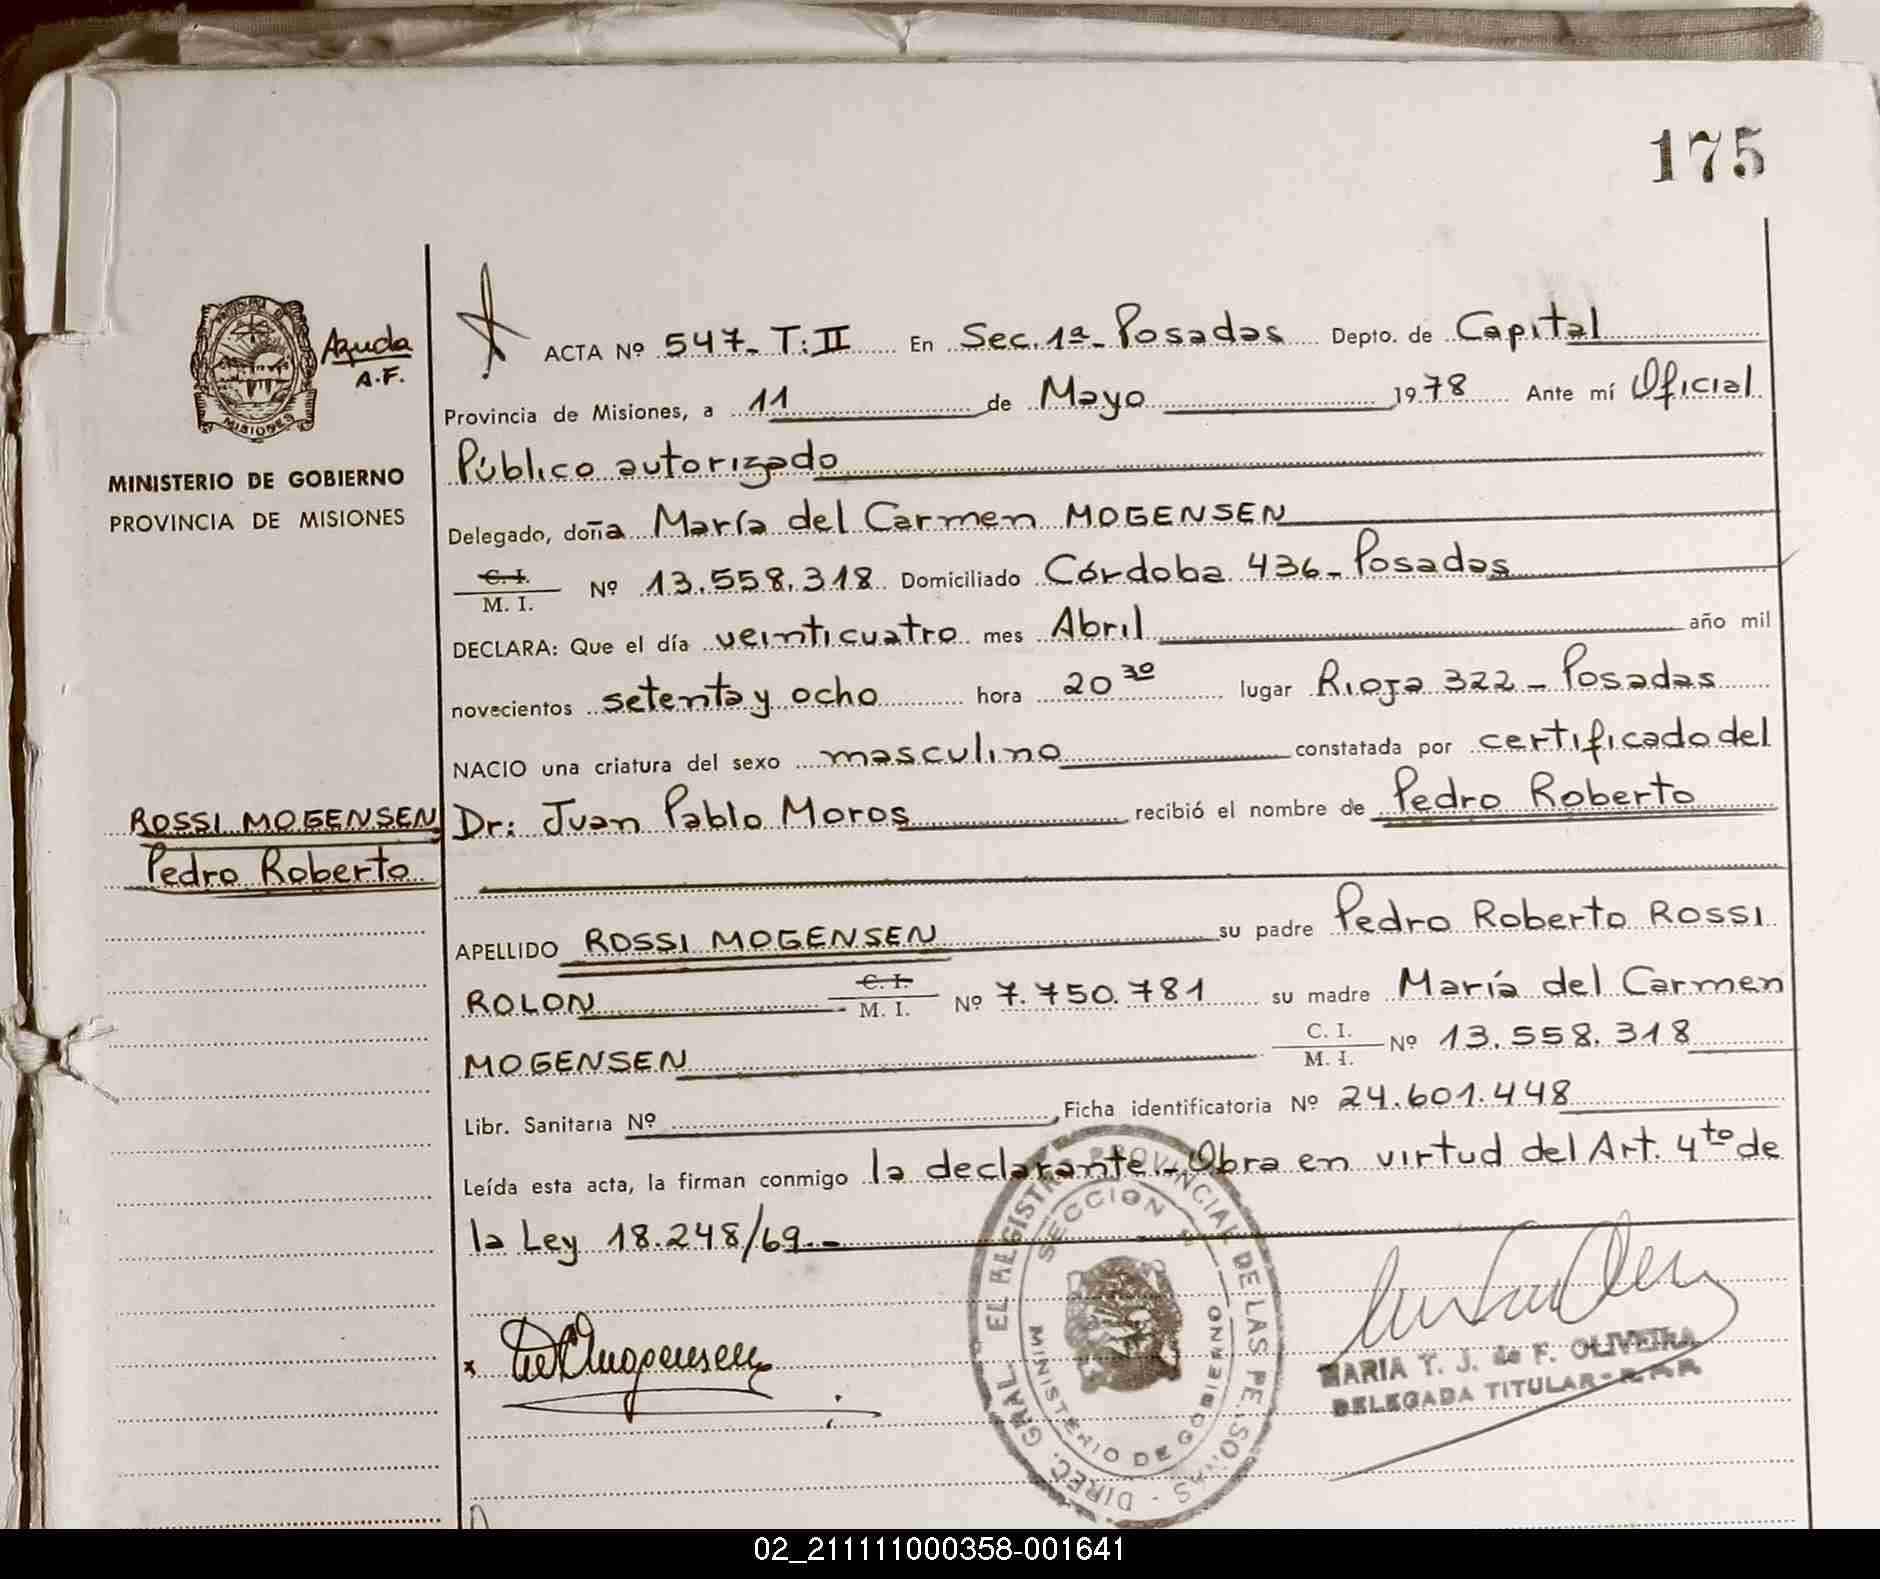 175
Ayuda
A.F.
MISIONES
MINISTERIO DE GOBIERNO
PROVINCIA DE MISIONES
ROSSI MOGENSEN
Pedro Roberto
ACTA Nº 547_ T: II En Sec. 1ª_ Posadas Depto. de Capital
Provincia de Misiones, a 11 de Mayo 1978 Ante mí Oficial
Público autorizado
Delegado, doña María del Carmen MOGENSEN
C. I.
M. I. Nº 13.558.318 Domiciliado Córdoba 436_ Posadas
DECLARA: Que el día veinticuatro mes Abril año mil
novecientos setenta y ocho hora 20 30 lugar Rioja 322 _ Posadas
NACIO una criatura del sexo masculino constatada por certificado del
Dr: Juan Pablo Moros recibió el nombre de Pedro Roberto
APELLIDO ROSSI MOGENSEN su padre Pedro Roberto ROSSI
ROLON C. I. M. I. Nº 7.750.781 su madre María del Carmen
MOGENSEN C. I. M. I. Nº 13.558.318
Libr. Sanitaria Nº , Ficha identificatoria Nº 24.601.448
Leída esta acta, la firman conmigo la declarante._ Obra en virtud del Art. 4to de
la Ley 18.248/69._
SECCION
MINISTERIO DE GOBIERNO
MARIA T. J. de F. OLIVEIRA
DELEGADA TITULAR
02_211111000358-001641